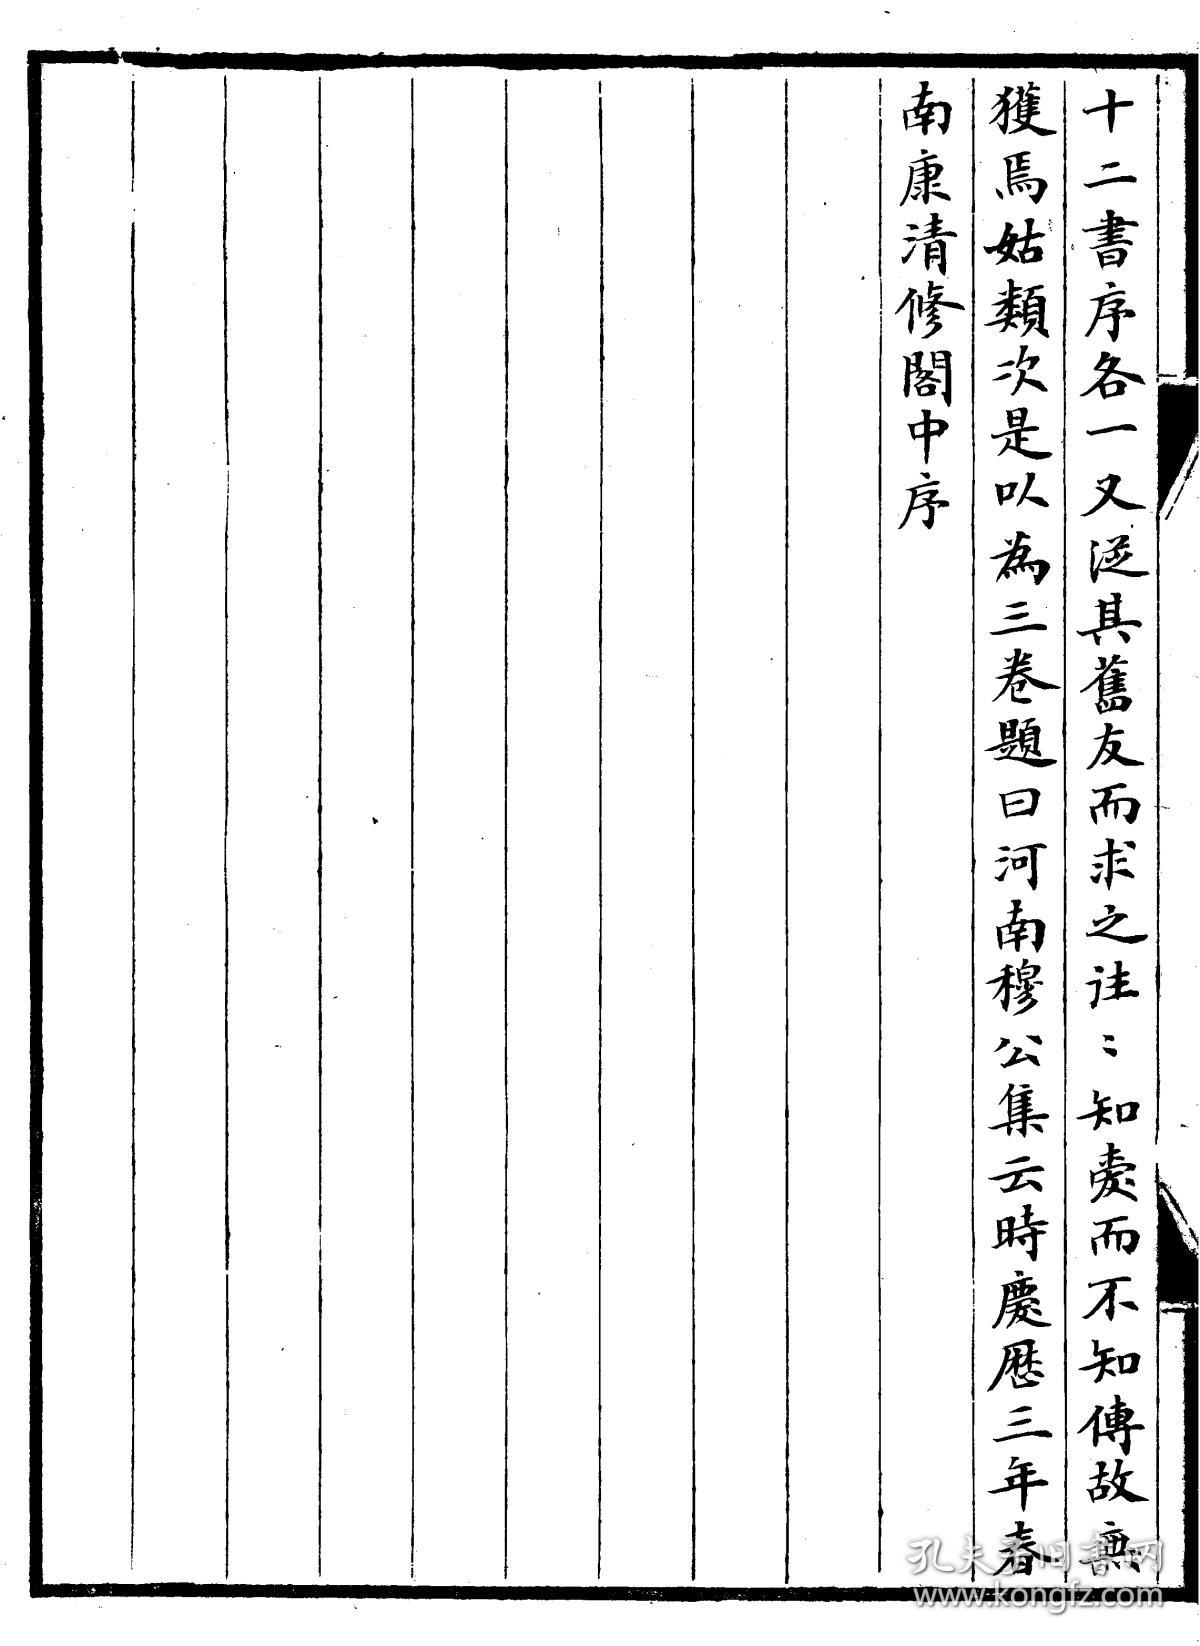 十二書序各一又從其舊友而求之注〻知䖏而不知傳故無
獲焉姑類次是以為三卷題曰河南穆公集云時慶厯三年春
南康清修閣中序
孔夫子旧书网
www.kongfz.com